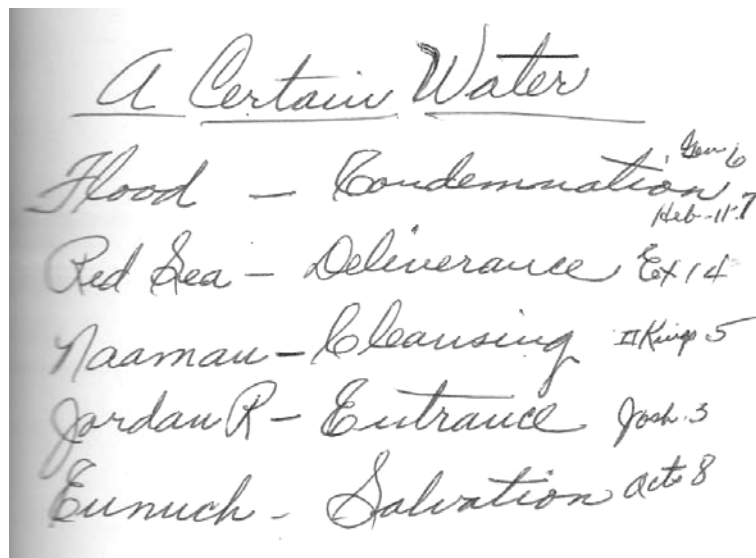 A Certain Water
Flood – Condemnation, Gen 6
Heb-11:7
Red Sea – Deliverance Ex 14
Naaman – Cleansing II Kings 5
Jordan R – Entrance Josh. 3
Eunuch – Salvation Acts 8